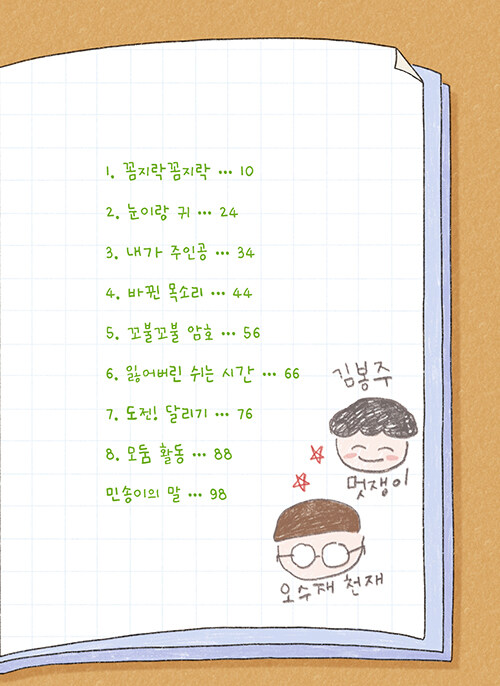 1. 꼼지락꼼지락 … 10
2. 눈이랑 귀 … 24
3. 내가 주인공 … 34
4. 바뀐 목소리 … 44
5. 꼬불꼬불 암호 … 56
6. 잃어버린 쉬는 시간 … 66
7. 도전! 달리기 … 76
8. 모둠 활동 … 88
민송이의 말 … 98
김봉주
멋쟁이
오수재 천재